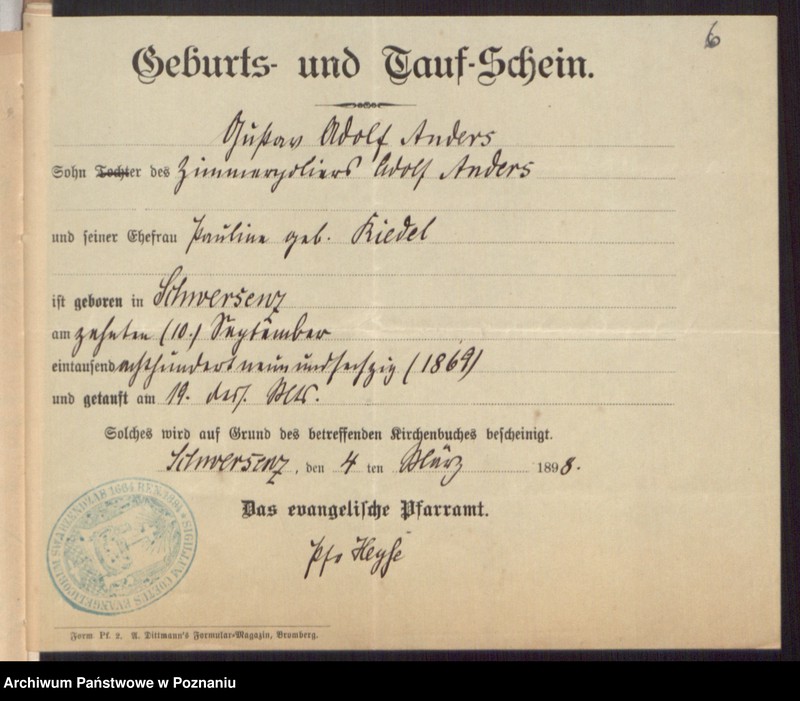 6
Geburts- und Tauf-Schein.
Gustav Adolf Anders
Sohn Tochter des Zimmerpoliers Adolf Anders
und seiner Ehefrau Pauline geb. Riedel
ist geboren in Schwersenz
am zehnten (10.) September
eintausend achthundert neun und sechszig (1869)
und getauft am 19. dess. Mts.
Solches wird auf Grund des betreffenden Kirchenbuches bescheinigt.
Schwersenz, den 4 ten März 1898.
Das evangelische Pfarramt.
Pfr Heyse
SIGILLUM COETUS EVANGELICORUM SWARZENDZAE 1664 REN.
Form. Pf. 2. A. Dittmann's Formular-Magazin, Bromberg.
Archiwum Państwowe w Poznaniu